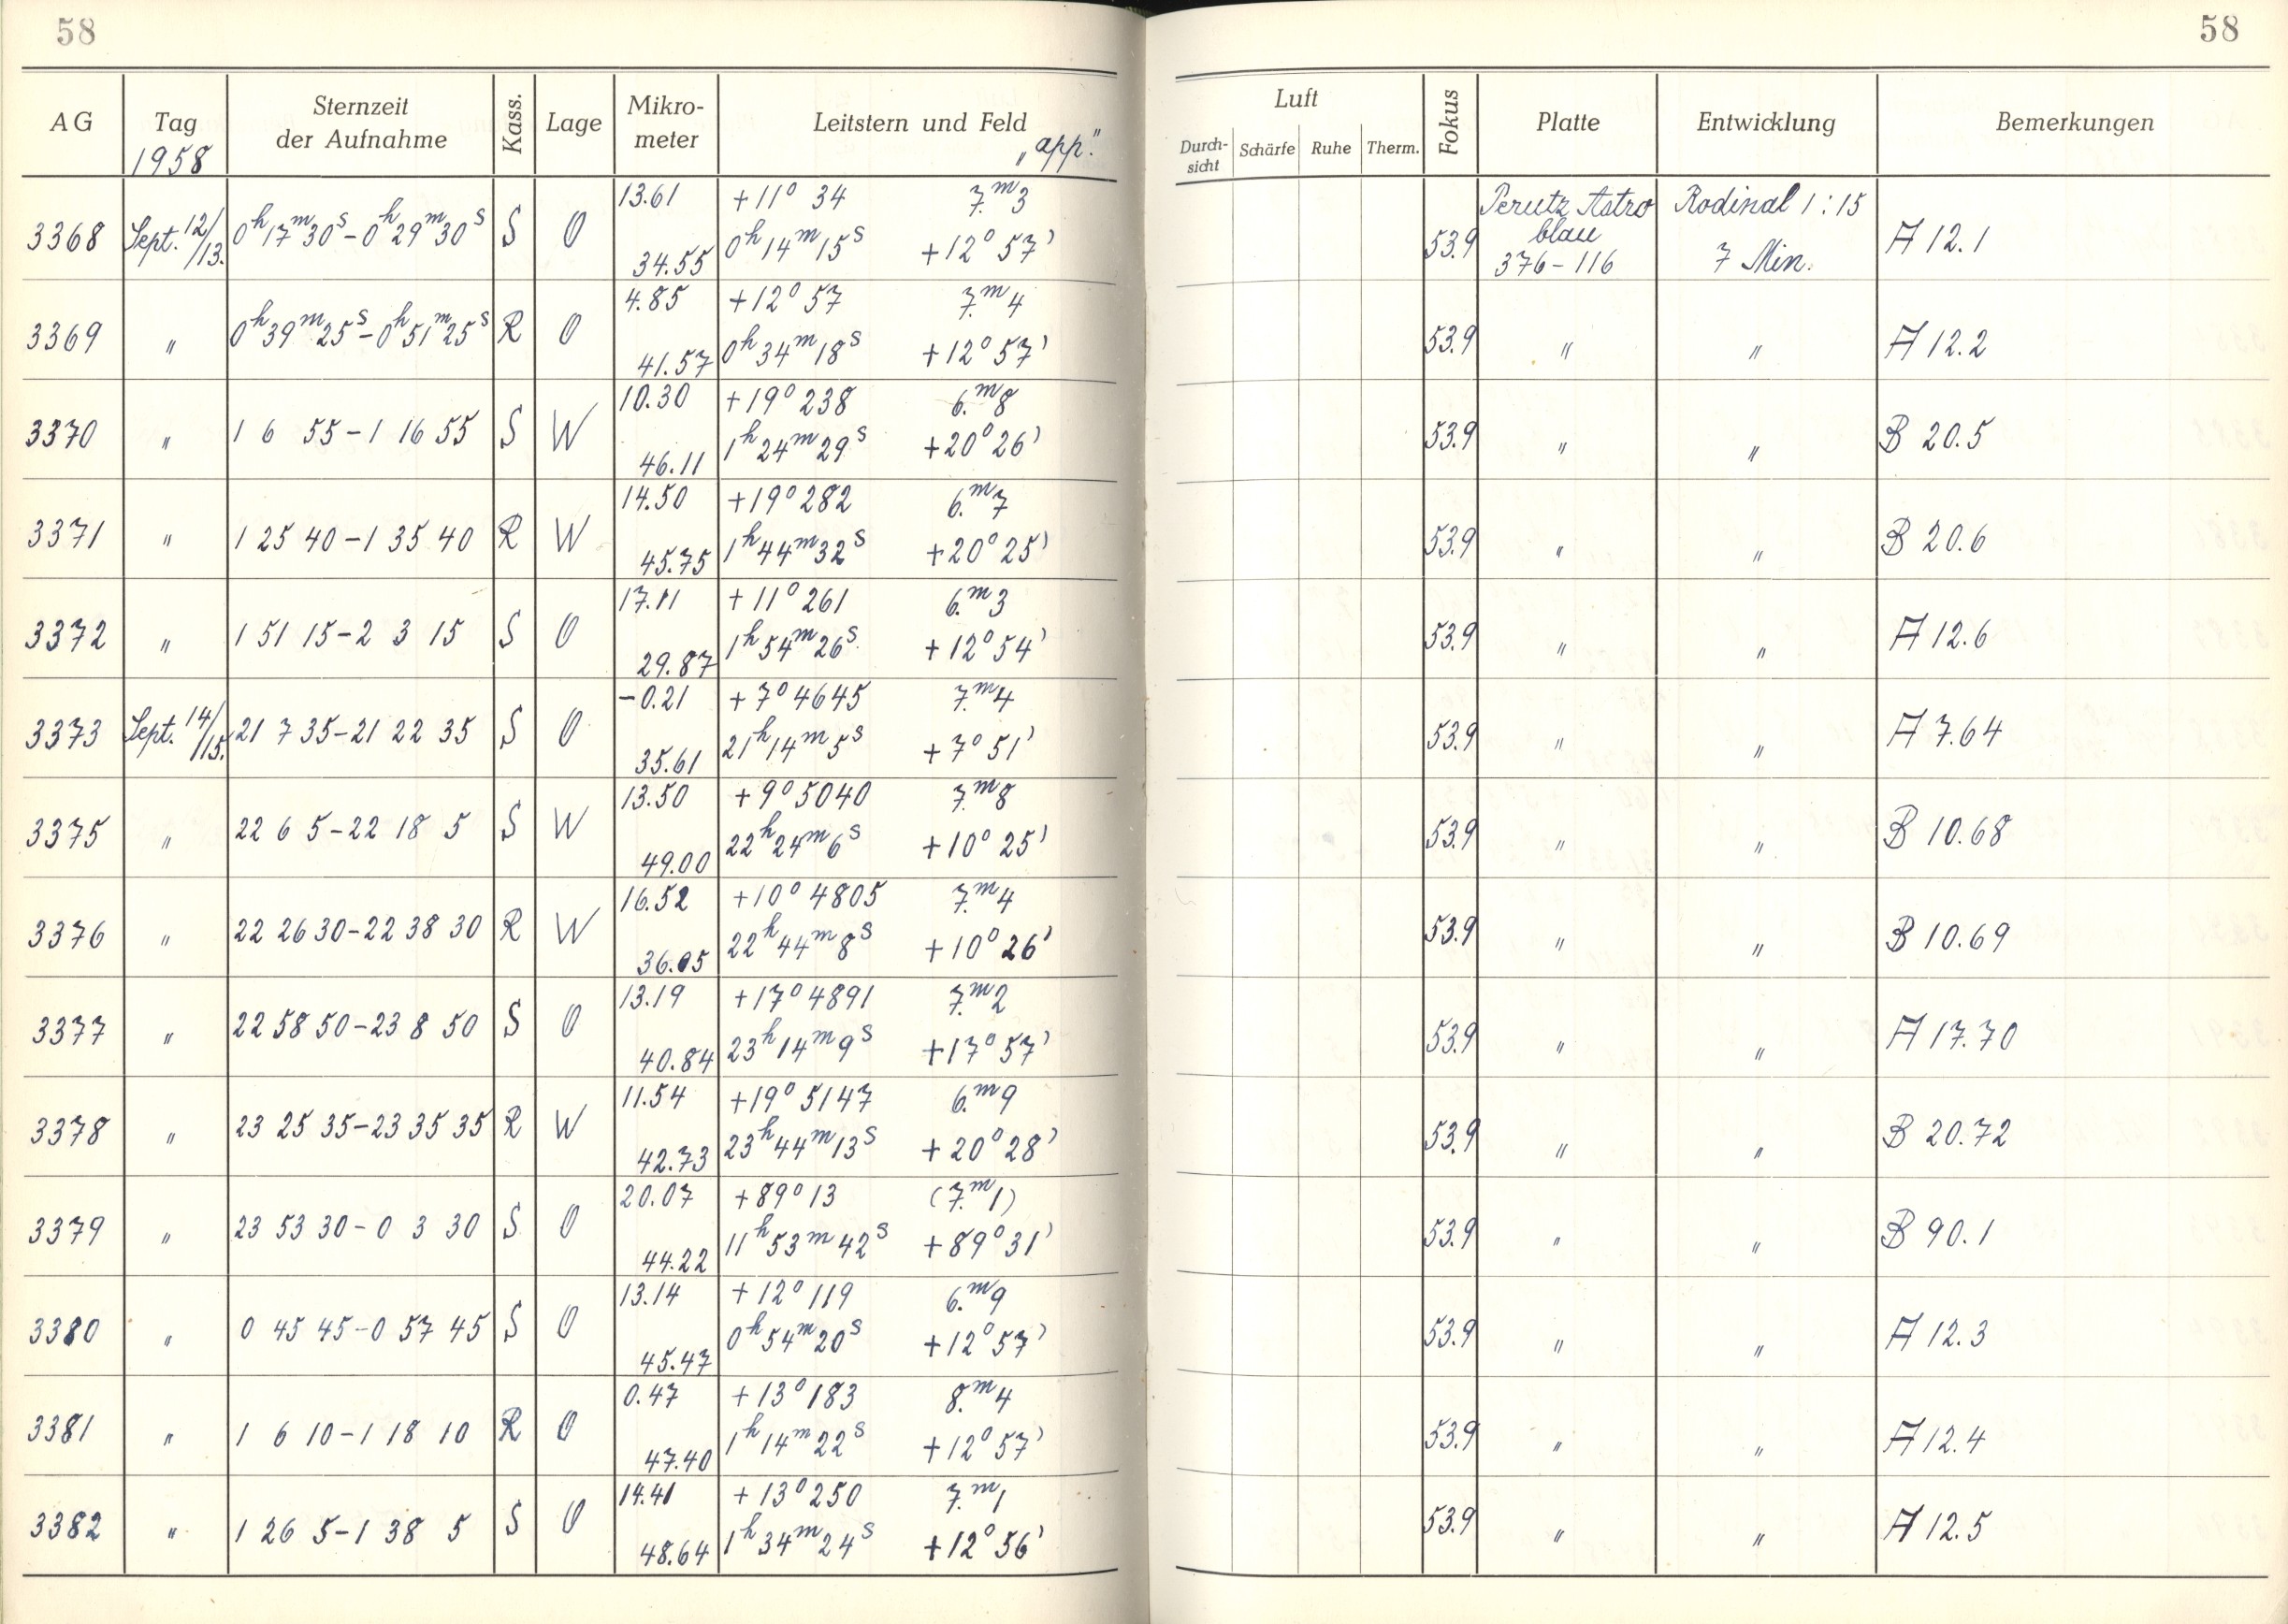 58
58
AG Tag Sternzeit der Aufnahme Kass. Lage Mikro-meter Leitstern und Feld „app."
1958
Luft
Durch-sicht Schärfe Ruhe Therm. Fokus Platte Entwicklung Bemerkungen
13.61 +11° 34 7.ᵐ3 Perutz Astro Rodinal 1:15
3368 Sept. 12/13. 0ʰ17ᵐ30ˢ–0ʰ29ᵐ30ˢ S O 53.9 blau A 12.1
34.55 0ʰ14ᵐ15ˢ +12° 57' 376–116 7 Min.
4.85 +12° 57 7.ᵐ4
3369 " 0ʰ39ᵐ25ˢ–0ʰ51ᵐ25ˢ R O 53.9 " " A 12.2
41.57 0ʰ34ᵐ18ˢ +12° 57'
10.30 +19° 238 6.ᵐ8
3370 " 1 6 55–1 16 55 S W 53.9 " " B 20.5
46.11 1ʰ24ᵐ29ˢ +20° 26'
14.50 +19° 282 6.ᵐ7
3371 " 1 25 40–1 35 40 R W 53.9 " " B 20.6
45.75 1ʰ44ᵐ32ˢ +20° 25'
17.11 +11° 261 6.ᵐ3
3372 " 1 51 15–2 3 15 S O 53.9 " " A 12.6
29.87 1ʰ54ᵐ26ˢ +12° 54'
–0.21 +7° 4645 7.ᵐ4
3373 Sept. 14/15. 21 7 35–21 22 35 S O 53.9 " " A 7.64
35.61 21ʰ14ᵐ5ˢ +7° 51'
13.50 +9° 5040 7.ᵐ8
3375 " 22 6 5–22 18 5 S W 53.9 " " B 10.68
49.00 22ʰ24ᵐ6ˢ +10° 25'
16.52 +10° 4805 7.ᵐ4
3376 " 22 26 30–22 38 30 R W 53.9 " " B 10.69
36.05 22ʰ44ᵐ8ˢ +10° 26'
13.19 +17° 4891 7.ᵐ2
3377 " 22 58 50–23 8 50 S O 53.9 " " A 17.70
40.84 23ʰ14ᵐ9ˢ +17° 57'
11.54 +19° 5147 6.ᵐ9
3378 " 23 25 35–23 35 35 R W 53.9 " " B 20.72
42.73 23ʰ44ᵐ13ˢ +20° 28'
20.07 +89° 13 (7.ᵐ1)
3379 " 23 53 30–0 3 30 S O 53.9 " " B 90.1
44.22 11ʰ53ᵐ42ˢ +89° 31'
13.14 +12° 119 6.ᵐ9
3380 " 0 45 45–0 57 45 S O 53.9 " " A 12.3
45.47 0ʰ54ᵐ20ˢ +12° 57'
0.47 +13° 183 8.ᵐ4
3381 " 1 6 10–1 18 10 R O 53.9 " " A 12.4
47.40 1ʰ14ᵐ22ˢ +12° 57'
14.41 +13° 250 7.ᵐ1
3382 " 1 26 5–1 38 5 S O 53.9 " " A 12.5
48.64 1ʰ34ᵐ24ˢ +12° 56'